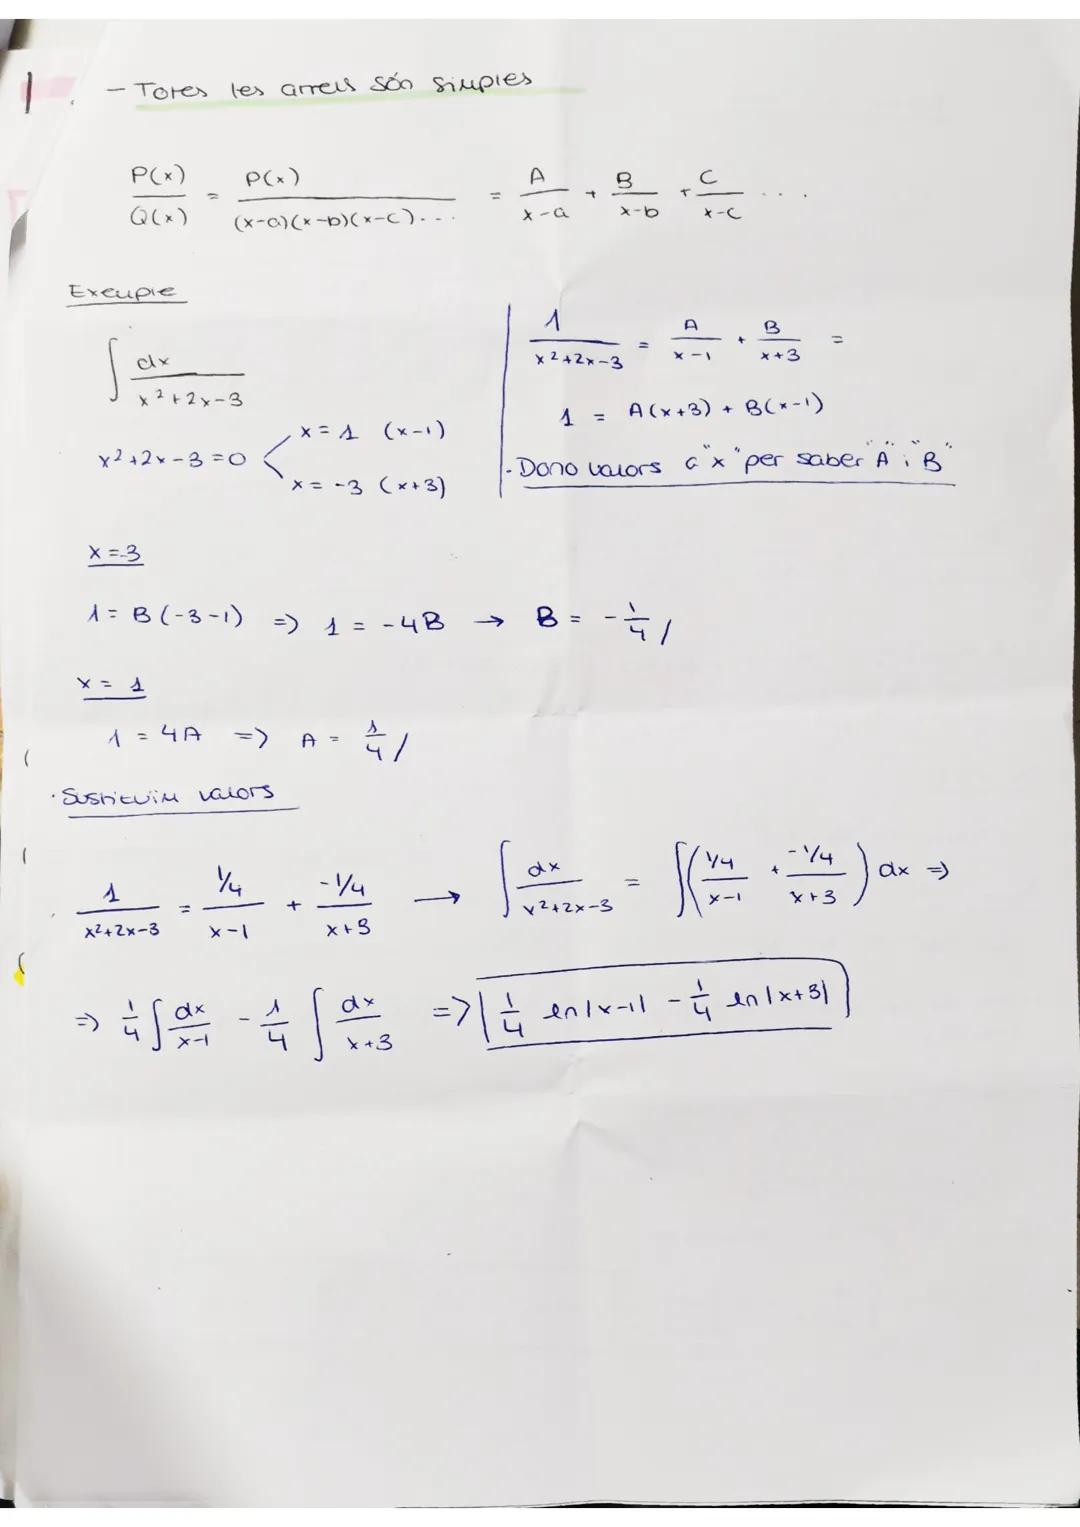 1. - Totes les arrels són simples
P(x)/Q(x) = P(x)/((x-a)(x-b)(x-c)...) = A/(x-a) + B/(x-b) + C/(x-c) ...
Exemple
∫ dx/(x²+2x-3)
x²+2x-3=0 < x=1 (x-1)
x=-3 (x+3)
1/(x²+2x-3) = A/(x-1) + B/(x+3) =
1 = A(x+3) + B(x-1)
· Dono valors a "x" per saber "A" i "B"
x=-3
1=B(-3-1) => 1=-4B → B=-1/4 /
x=1
1=4A => A=1/4 /
· Sustituim valors
1/(x²+2x-3) = (1/4)/(x-1) + (-1/4)/(x+3) → ∫ dx/(x²+2x-3) = ∫((1/4)/(x-1) + (-1/4)/(x+3)) dx =>
=> 1/4 ∫ dx/(x-1) - 1/4 ∫ dx/(x+3) => 1/4 ln|x-1| - 1/4 ln|x+3|